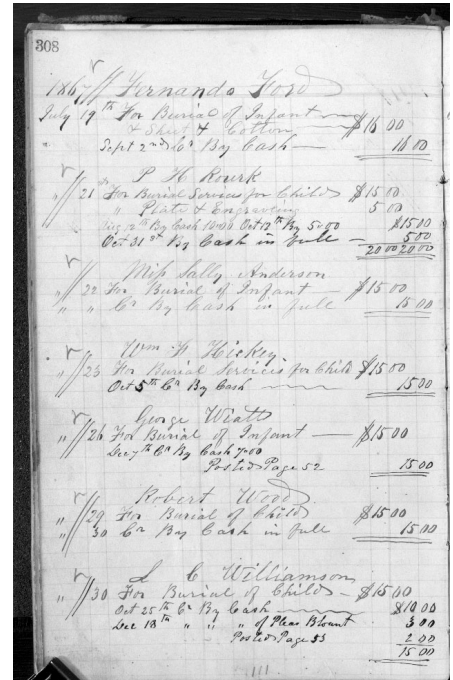 308
1867 Fernando Ford
July 19th For Burial of Infant $16 00
" & Shut & Cotton
" Sept 2nd Cr By Cash — 16 00
P H Rourk
" 21st For Burial Services for Child $15 00
" Plate & Engraving 5 00
Aug 12th By Cash 10.00 Oct 12th By 5.00 $15 00
Oct 31st By Cash in full — 5 00
20 00 20 00
Miss Sally Anderson
" 22 For Burial of Infant — $15 00
" " Cr By Cash in full 15 00
Wm H Hickey
" 23 For Burial Services for Child $15 00
Oct 5th Cr By Cash 15 00
George Wiatt
" 26 For Burial of Infant — $15 00
Dec 7th Cr By Cash 7.00
Posted Page 52 15 00
Robert Wood
" 29 For Burial of Child $15 00
" 30 Cr By Cash in full 15 00
L C Williamson
" 30 For Burial of Child — $15 00
Oct 25th Cr By Cash $10 00
Dec 18th " " " of Pleas Blount 3 00
Posted Page 53 2 00
15 00